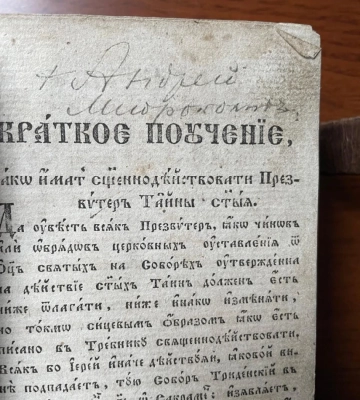 к Андрей
КРА́ТКОЕ ПОꙊЧЕ́НЇЕ,
ꙗ҆́кѡ и҆́мат сщ҃еннодѣ́йствовати През-
вѵ́теръ Та́йны ст҃ы́ѧ.
Да оу҆вѣ́сть всѧ́къ Презвѵ́теръ, ꙗ҆́кѡ чи́нѡвъ
и҆лѝ ѻ҆брѧ́дѡвъ церко́вныхъ оу҆ставле́нїѧ ѿ
Ѻ҆ц҃ъ свѧты́хъ на Собо́рѣхъ оу҆твержде́нна
на дѣ́йствїе ст҃ы́хъ Та́ин до́лженъ є҆́сть
ни́же ѿлага́ти, ни́же и҆на́кѡ и҆змѣнѧ́ти,
но то́кмѡ сицевы́мъ ѻ҆́бразомъ ꙗ҆́кѡ є҆́сть
пи́сано въ Тре́бнику свѧщеннодѣ́йствовати,
Всѧ́къ бо І҆ере́й и҆на́че дѣ́йствꙋѧй, ꙗ҆ково́й ви-
нѣ̀ подпада́етъ, то́ю Собо́ръ Триде́нскїй въ
и҆з̾ѧвлѧ́етъ,